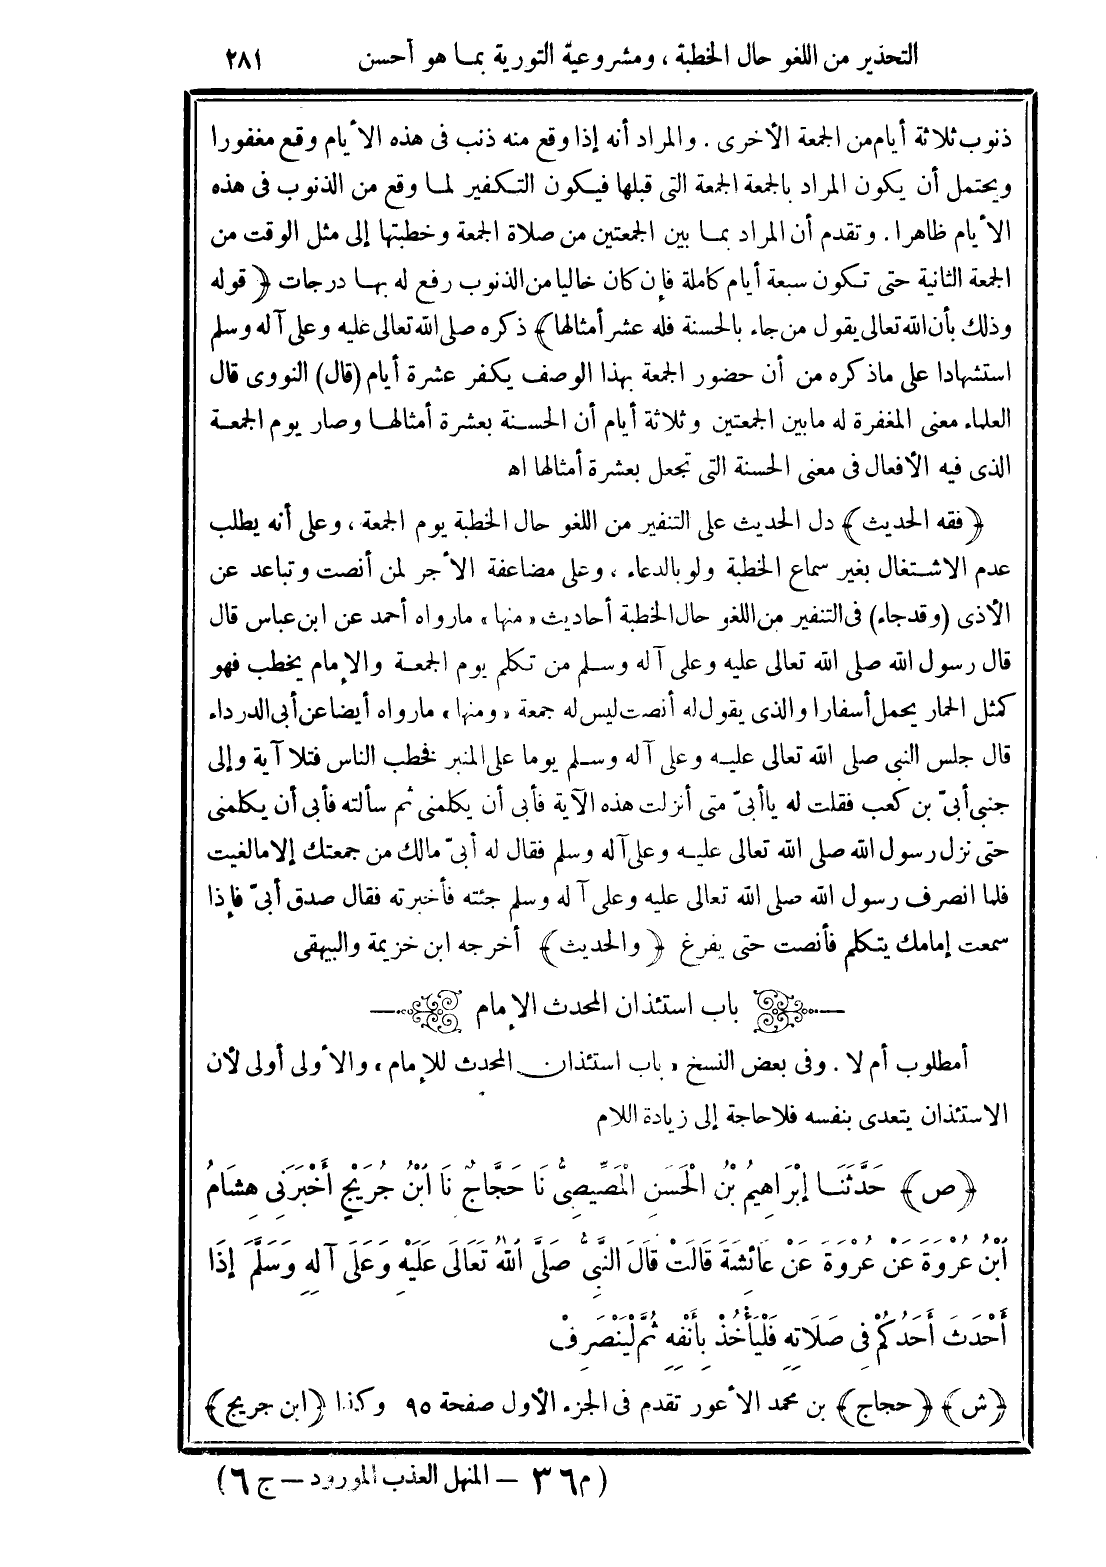 التحذير من اللغو حال الخطبة ، ومشروعية التورية بما هو أحسن ٢٨١
ذنوب ثلاثة أيام من الجمعة الأخرى . والمراد أنه إذا وقع منه ذنب فى هذه الأيام وقع مغفورا
ويحتمل أن يكون المراد بالجمعة الجمعة التى قبلها فيكون التكفير لما وقع من الذنوب فى هذه
الأيام ظاهرا . وتقدم أن المراد بما بين الجمعتين من صلاة الجمعة وخطبتها إلى مثل الوقت من
الجمعة الثانية حتى تكون سبعة أيام كاملة فإن كان خاليا من الذنوب رفع له بها درجات ﴿ قوله
وذلك بأن الله تعالى يقول من جاء بالحسنة فله عشر أمثالها﴾ ذكره صلى الله تعالى عليه وعلى آله وسلم
استشهادا على ماذكره من أن حضور الجمعة بهذا الوصف يكفر عشرة أيام (قال) النووى قال
العلماء معنى المغفرة له مابين الجمعتين وثلاثة أيام أن الحسنة بعشرة أمثالها وصار يوم الجمعة
الذى فيه الأفعال فى معنى الحسنة التى تجعل بعشرة أمثالها اه
﴿فقه الحديث﴾ دل الحديث على التنفير من اللغو حال الخطبة يوم الجمعة ، وعلى أنه يطلب
عدم الاشتغال بغير سماع الخطبة ولو بالدعاء ، وعلى مضاعفة الأجر لمن أنصت وتباعد عن
الأذى (وقدجاء) فى التنفير من اللغو حال الخطبة أحاديث «منها» مارواه أحمد عن ابن عباس قال
قال رسول الله صلى الله تعالى عليه وعلى آله وسلم من تكلم يوم الجمعة والإمام يخطب فهو
كمثل الحمار يحمل أسفارا والذى يقول له أنصت ليس له جمعة «ومنها» مارواه أيضا عن أبى الدرداء
قال جلس النبى صلى الله تعالى عليه وعلى آله وسلم يوما على المنبر فخطب الناس فتلا آية وإلى
جنبى أبىّ بن كعب فقلت له ياأبىّ متى أنزلت هذه الآية فأبى أن يكلمنى ثم سألته فأبى أن يكلمنى
حتى نزل رسول الله صلى الله تعالى عليه وعلى آله وسلم فقال له أبىّ مالك من جمعتك إلا مالغيت
فلما انصرف رسول الله صلى الله تعالى عليه وعلى آله وسلم جئته فأخبرته فقال صدق أبىّ فإذا
سمعت إمامك يتكلم فأنصت حتى يفرغ ﴿والحديث﴾ أخرجه ابن خزيمة والبيهقى
باب استئذان المحدث الإمام
أمطلوب أم لا . وفى بعض النسخ «باب استئذان المحدث للإمام» والأولى أولى لأن
الاستئذان يتعدى بنفسه فلاحاجة إلى زيادة اللام
﴿ص﴾ حَدَّثَنَا إِبْرَاهِيمُ بْنُ الْحَسَنِ الْمَصِّيصِىُّ نَا حَجَّاجٌ نَا ابْنُ جُرَيْجٍ أَخْبَرَنِى هِشَامُ
ابْنُ عُرْوَةَ عَنْ عُرْوَةَ عَنْ عَائِشَةَ قَالَتْ قَالَ النَّبِىُّ صَلَّى اللهُ تَعَالَى عَلَيْهِ وَعَلَى آلِهِ وَسَلَّمَ إِذَا
أَحْدَثَ أَحَدُكُمْ فِى صَلَاتِهِ فَلْيَأْخُذْ بِأَنْفِهِ ثُمَّ لْيَنْصَرِفْ
﴿ش﴾ ﴿حجاج﴾ بن محمد الأعور تقدم فى الجزء الأول صفحة ٩٥ وكذا ﴿ابن جريج﴾
(م ٣٦ – المنهل العذب المورود – ج ٦)